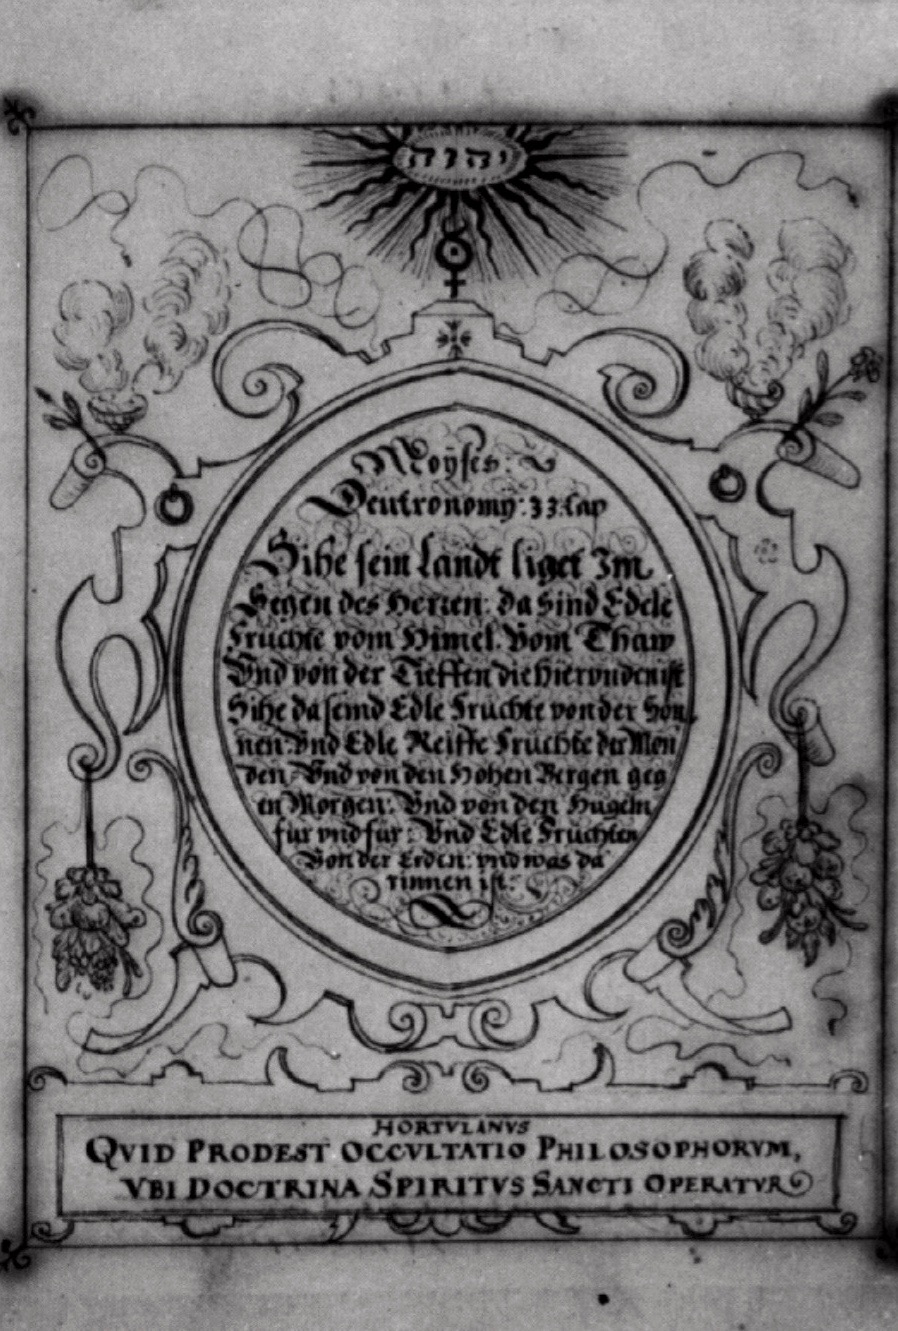 יהוה
Moÿses:
Deutronomy: 33: Cap
Sihe sein Landt liget Im
Segen des Herren: da Sind Edele
Fruchte vom Himel. Vom Thaw
Vnd von der Tieffen die hie vnden ist
Sihe da seind Edle Fruchte von der Son,
nen: Vnd Edle Reiffe Fruchte der Mon
den: Vnd von den Hohen Bergen geg
en Morgen: Vnd von den Hugeln
für vnd für: Vnd Edle Fruchten
Von der Erden: vnd was da
rinnen ist:
HORTVLANVS
QVID PRODEST OCCVLTATIO PHILOSOPHORVM,
VBI DOCTRINA SPIRITVS SANCTI OPERATVR